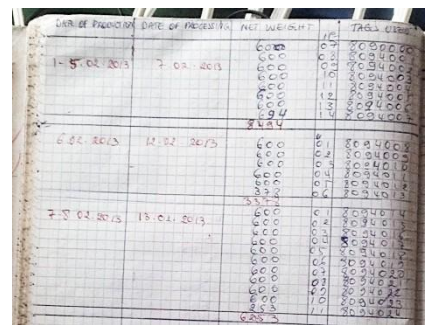 DATE OF PRODUCTION DATE OF PROCESSING NET WEIGHT TAGS USED
600 07 8094000
1-5.02.2013 7.02.2013 600 08
600 09
600 10 8094003
600 11
600 12
600 13 8094006
694 14 8094007
8494
6.02.2013 12.02.2013 600 01 8094008
600 02 8094009
600 03 8094010
600 04 8094011
600 05 8094012
378 06 8094013
3378
7-8.02.2013 13.02.2013 600 01 8094014
600 02 8094015
600 03 8094016
600 04 8094017
600 05 8094018
600 06 8094019
600 07 8094020
600 08 8094021
600 09 8094022
600 10 8094023
253 11 8094024
6253